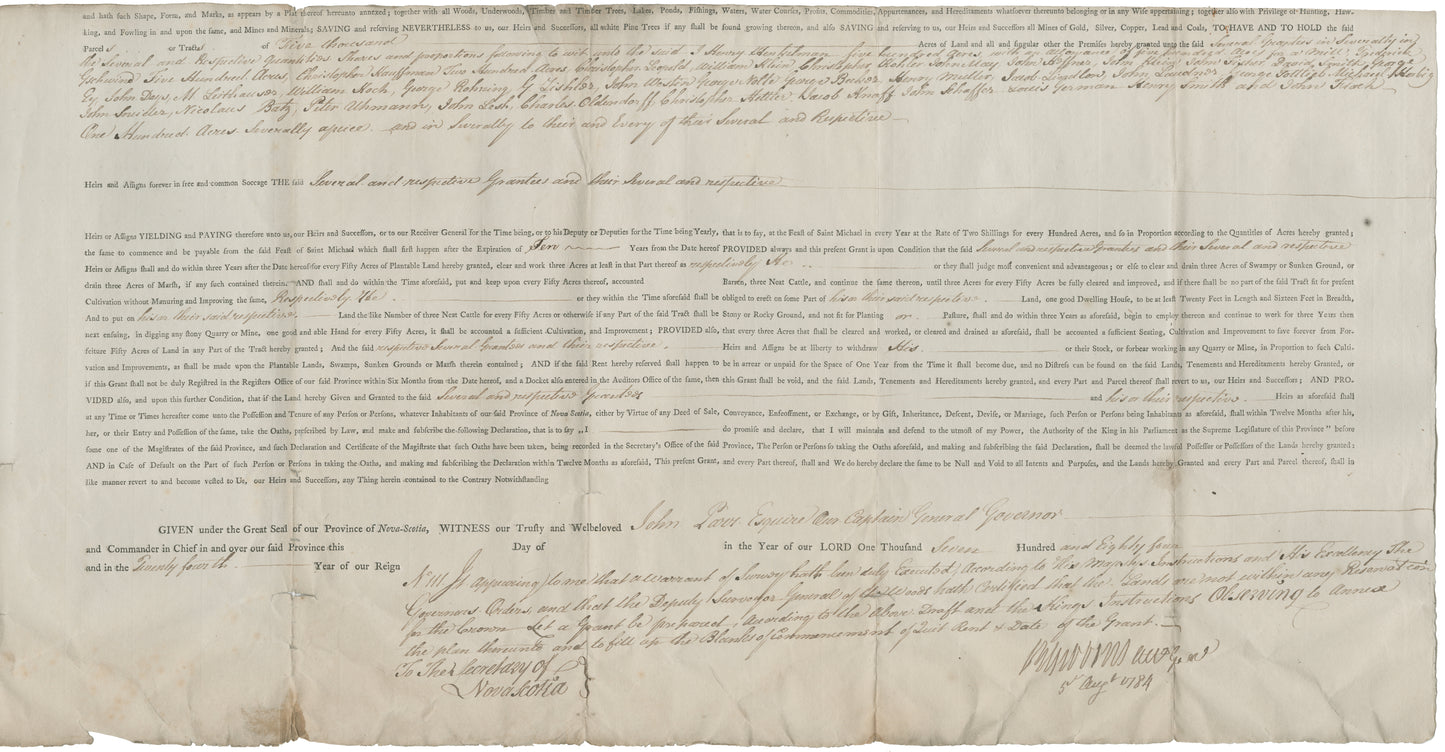 and hath such Shape, Form, and Marks, as appears by a Plat thereof hereunto annexed; together with all Woods, Underwoods, Timber and Timber Trees, Lakes, Ponds, Fishings, Waters, Water Courses, Profits, Commodities, Appurtenances, and Hereditaments whatsoever thereunto belonging or in any Wise appertaining; together also with Privilege of Hunting, Haw-
king, and Fowling in and upon the same, and Mines and Minerals; SAVING and reserving NEVERTHELESS to us, our Heirs and Successors, all white Pine Trees if any shall be found growing thereon, and also SAVING and reserving to us, our Heirs and Successors all Mines of Gold, Silver, Copper, Lead and Coals, TO HAVE AND TO HOLD the said
Parcels or Tracts of Five thousand Acres of Land and all and singular other the Premises hereby granted unto the said Several Grantees in Severalty in
the Several and Respective Quantities Shares and proportions following to wit unto the said Henry five hundred Acres with an allowance of five hundred Acres for a Mill; Frederick
Gschwind Five Hundred Acres, Christopher Kauffman Two Hundred Acres, Christopher William Klein, Christopher Kohler John May John John Klein John Fisher David Smith, George
Ey John Days, M. William Koch, George John Weston George Nolte George Beker Henry Miller, Jacob John George Gottlieb Michael
John Snider, Nicolaus Batz, Peter Uhmann, John Losh, Charles Oldendorff Christopher Hettler, Jacob Knoff John Schaffer Louis German Henry Smith and John Fisch
One Hundred Acres Severally apiece and in Severalty to their and Every of their Several and Respective
Heirs and Assigns forever in free and common Soccage THE said Several and respective Grantees and their Several and respective
Heirs or Assigns YIELDING and PAYING therefore unto us, our Heirs and Successors, or to our Receiver General for the Time being, or to his Deputy or Deputies for the Time being Yearly, that is to say, at the Feast of Saint Michael in every Year at the Rate of Two Shillings for every Hundred Acres, and so in Proportion according to the Quantities of Acres hereby granted;
the same to commence and be payable from the said Feast of Saint Michael which shall first happen after the Expiration of Ten Years from the Date hereof PROVIDED always and this present Grant is upon Condition that the said Several and respective Grantees and their Several and respective
Heirs or Assigns shall and do within three Years after the Date hereof for every Fifty Acres of Plantable Land hereby granted, clear and work three Acres at least in that Part thereof as respectively He or they shall judge most convenient and advantageous; or else to clear and drain three Acres of Swampy or Sunken Ground, or
drain three Acres of Marsh, if any such contained therein. AND shall and do within the Time aforesaid, put and keep upon every Fifty Acres thereof, accounted Barren, three Neat Cattle, and continue the same thereon, until three Acres for every Fifty Acres be fully cleared and improved, and if there shall be no part of the said Tract fit for present
Cultivation without Manuring and Improving the same, Respectively He or they within the Time aforesaid shall be obliged to erect on some Part of his or their said respective Land, one good Dwelling House, to be at least Twenty Feet in Length and Sixteen Feet in Breadth,
And to put on his or their said respective Land the like Number of three Neat Cattle for every Fifty Acres or otherwise if any Part of the said Tract shall be Stony or Rocky Ground, and not fit for Planting or Pasture, shall and do within three Years as aforesaid, begin to employ thereon and continue to work for three Years then
next ensuing, in digging any stony Quarry or Mine, one good and able Hand for every Fifty Acres, it shall be accounted a sufficient Cultivation, and Improvement; PROVIDED also, that every three Acres that shall be cleared and worked, or cleared and drained as aforesaid, shall be accounted a sufficient Seating, Cultivation and Improvement to save forever from For-
feiture Fifty Acres of Land in any Part of the Tract hereby granted; And the said respective Several Grantees and their respective Heirs and Assigns be at liberty to withdraw His or their Stock, or forbear working in any Quarry or Mine, in Proportion to such Culti-
vation and Improvements, as shall be made upon the Plantable Lands, Swamps, Sunken Grounds or Marsh therein contained; AND if the said Rent hereby reserved shall happen to be in arrear or unpaid for the Space of One Year from the Time it shall become due, and no Distress can be found on the said Lands, Tenements and Hereditaments hereby Granted, or
if this Grant shall not be duly Registred in the Registers Office of our said Province within Six Months from the Date hereof, and a Docket also entered in the Auditors Office of the same, then this Grant shall be void, and the said Lands, Tenements and Hereditaments hereby granted, and every Part and Parcel thereof shall revert to us, our Heirs and Successors; AND PRO-
VIDED also, and upon this further Condition, that if the Land hereby Given and Granted to the said Several and respective Grantees and his or their respective Heirs as aforesaid shall
at any Time or Times hereafter come unto the Possession and Tenure of any Person or Persons, whatever Inhabitants of our said Province of Nova Scotia, either by Virtue of any Deed of Sale, Conveyance, Enfeoffment, or Exchange, or by Gift, Inheritance, Descent, Devise, or Marriage, such Person or Persons being Inhabitants as aforesaid, shall within Twelve Months after his,
her, or their Entry and Possession of the same, take the Oaths, prescribed by Law, and make and subscribe the following Declaration, that is to say „I do promise and declare, that I will maintain and defend to the utmost of my Power, the Authority of the King in his Parliament as the Supreme Legislature of this Province" before
some one of the Magistrates of the said Province, and such Declaration and Certificate of the Magistrate that such Oaths have been taken, being recorded in the Secretary's Office of the said Province, The Person or Persons so taking the Oaths aforesaid, and making and subscribing the said Declaration, shall be deemed the lawful Possessor or Possessors of the Lands hereby granted;
AND in Case of Default on the Part of such Person or Persons in taking the Oaths, and making and subscribing the Declaration within Twelve Months as aforesaid, This present Grant, and every Part thereof, shall and We do hereby declare the same to be Null and Void to all Intents and Purposes, and the Lands hereby Granted and every Part and Parcel thereof, shall in
like manner revert to and become vested to Us, our Heirs and Successors, any Thing herein contained to the Contrary Notwithstanding
GIVEN under the Great Seal of our Province of Nova-Scotia, WITNESS our Trusty and Welbeloved John Parr Esquire Our Captain General Governor
and Commander in Chief in and over our said Province this Day of in the Year of our LORD One Thousand Seven Hundred and Eighty four
and in the Twenty fourth Year of our Reign
It appearing to me that a warrant of Survey hath been duly Executed, According to His Majestys Instructions and His Excellency The
Governors Orders, and that the Deputy Surveyor General of the Woods hath Certified that the Lands are not within any Reservation
for the Crown Let a Grant be prepared, According to the Above Draft and the Kings Instructions Observing to Annex
the plan thereunto and to fill up the Blanks of Commencement of Quit Rent & Date of the Grant.
To The Secretary of
Nova Scotia
5 Augt 1784